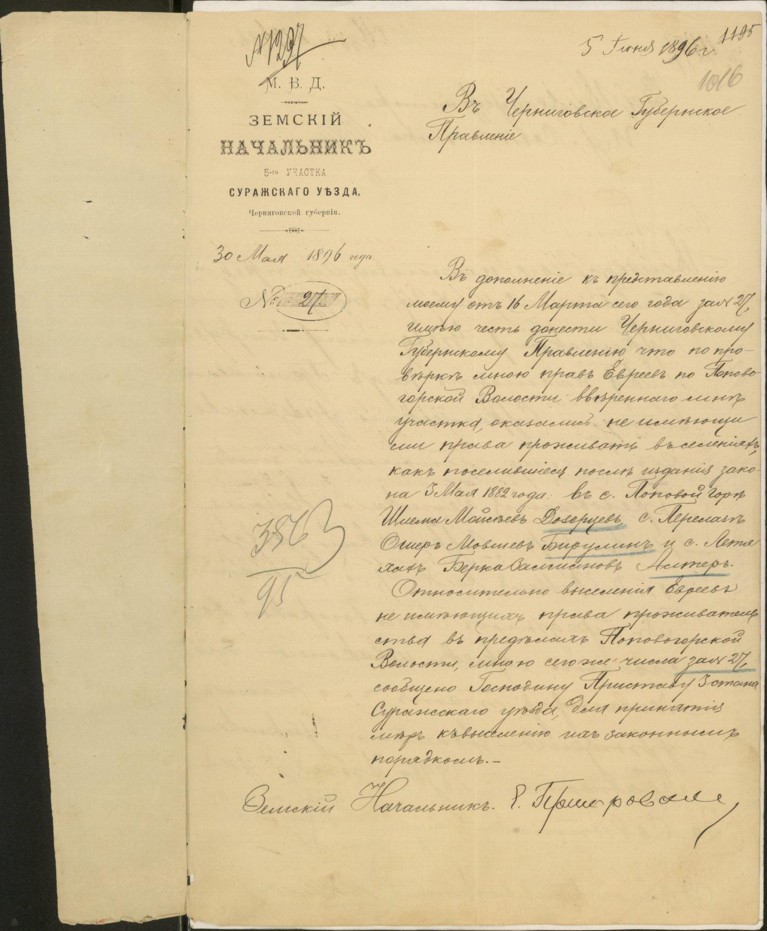 №1297
5 Июня 1896 г.
1195
1016
М. В. Д.
ЗЕМСКІЙ
НАЧАЛЬНИКЪ
5-го УЧАСТКА
СУРАЖСКАГО УѢЗДА,
Черниговской губерніи.
30 Мая 1896 года
№ 27
Въ Черниговское Губернское
Правленіе
Въ дополненіе къ представленію
моему отъ 16 Марта сего года за № 27,
имѣю честь донести Черниговскому
Губернскому Правленію что по про-
вѣркѣ мною правъ Евреевъ по Попово-
горской Волости ввѣреннаго мнѣ
участка, оказались не имѣющи
ми права проживать въ селеніяхъ,
какъ поселившіеся послѣ изданія зако-
на 3 Мая 1882 года: въ с. Поповой Горѣ
Шлема Мойсеевъ с. Перелазѣ
Ошеръ Мовшевъ и с. Летя
хахъ Берка Залмановъ Алтеръ.
Относительно выселенія Евреевъ
не имѣющихъ права прожительь
ства въ предѣлахъ Поповогорской
Волости, мною сего же числа за № 27,
сообщено Господину Приставу 3 стана
Суражскаго уѣзда, для принятія
мѣръ къ выселенію ихъ законнымъ
порядкомъ.-
3863
95
Земскій Начальникъ.